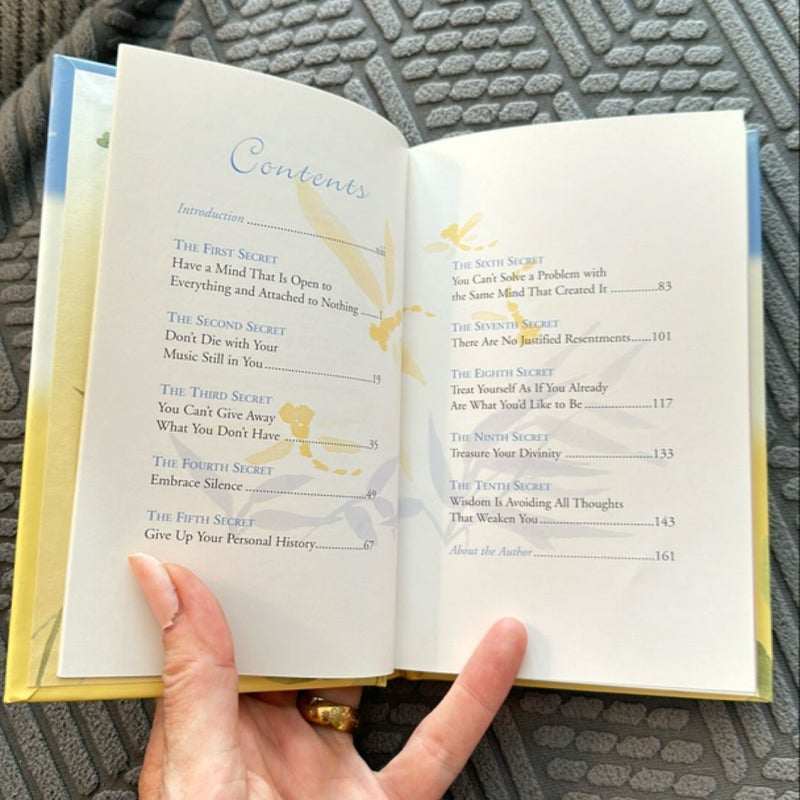 Contents
Introduction ........................
The First Secret
Have a Mind That Is Open to
Everything and Attached to Nothing ......1
The Second Secret
Don't Die with Your
Music Still in You..........................19
The Third Secret
You Can't Give Away
What You Don't Have ...................35
The Fourth Secret
Embrace Silence ............................49
The Fifth Secret
Give Up Your Personal History............67
The Sixth Secret
You Can't Solve a Problem with
the Same Mind That Created It ..............83
The Seventh Secret
There Are No Justified Resentments......101
The Eighth Secret
Treat Yourself As If You Already
Are What You'd Like to Be ...................117
The Ninth Secret
Treasure Your Divinity ......................133
The Tenth Secret
Wisdom Is Avoiding All Thoughts
That Weaken You ............................143
About the Author..............................161